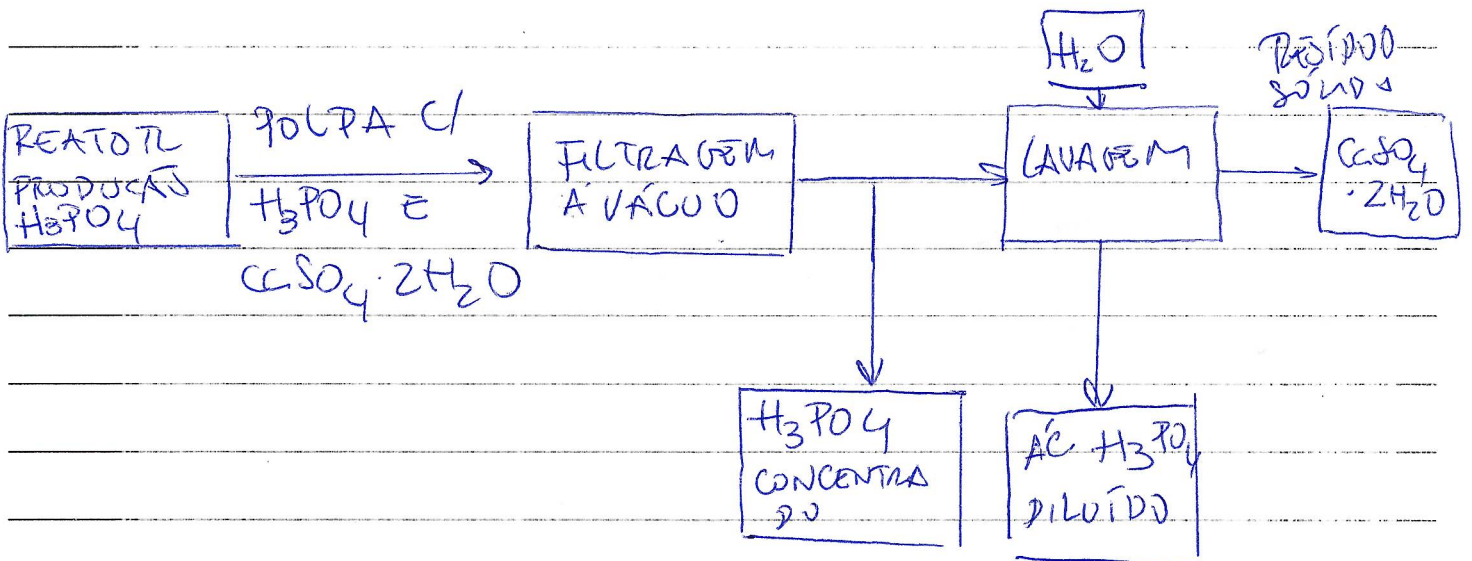 REATOR
PRODUÇÃO
H₃PO₄
POLPA C/
H₃PO₄ E
CaSO₄·2H₂O
FILTRAGEM
À VÁCUO
H₂O
LAVAGEM
RESÍDUO
SÓLIDO
CaSO₄
·2H₂O
H₃PO₄
CONCENTRA
DO
ÁC H₃PO₄
DILUÍDO